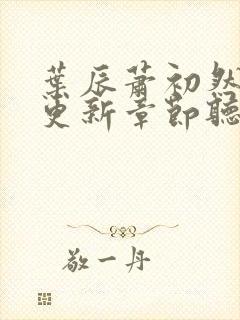 葉辰蕭初然
更新章節聽
敬一丹